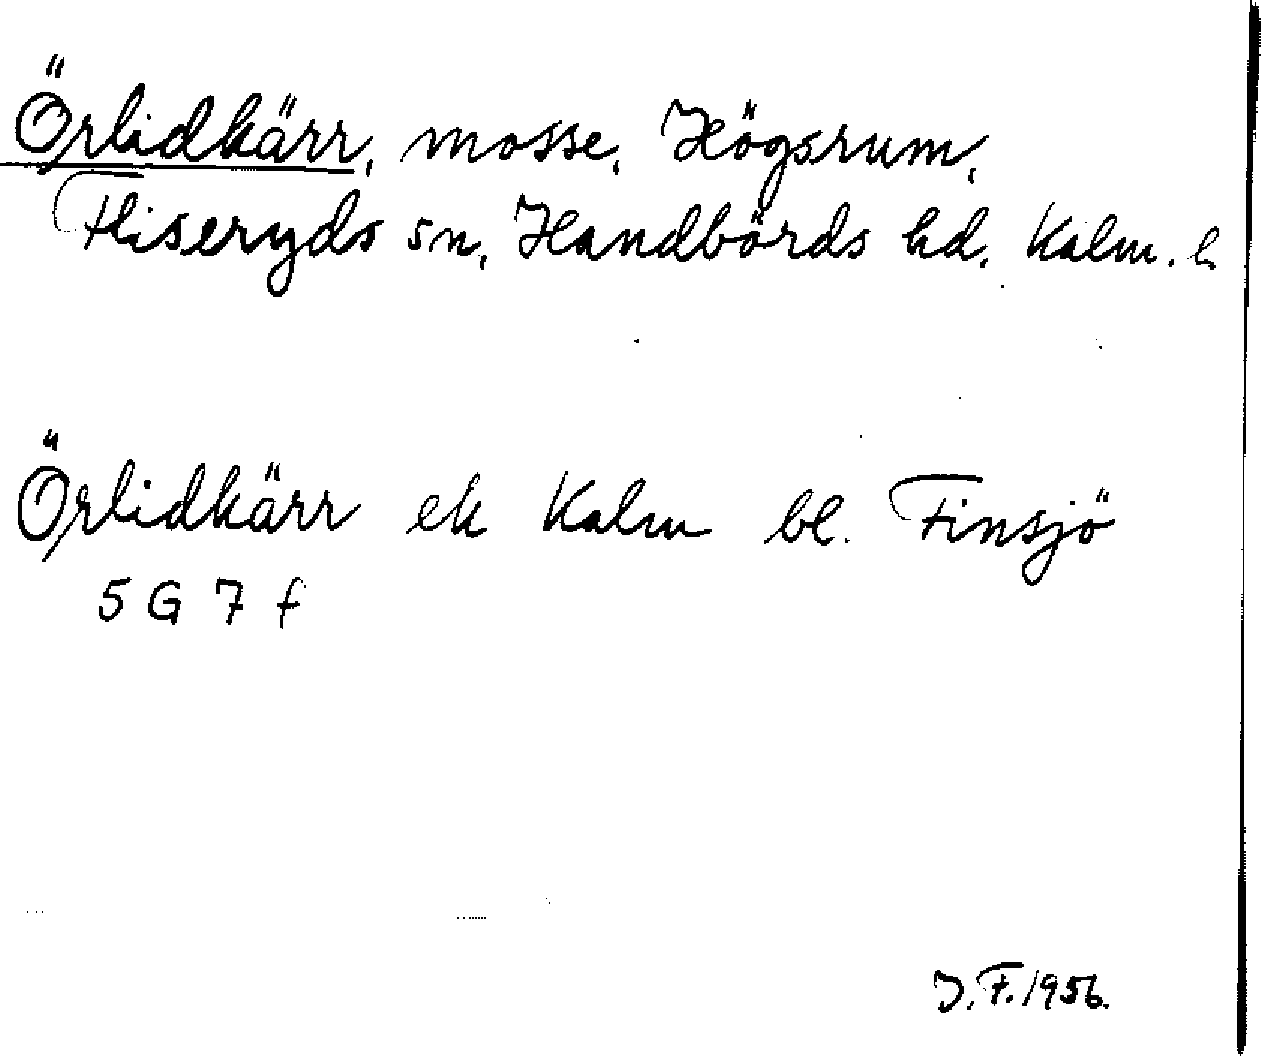 Örlidkärr, mosse, Högsrum,
Fliseryds sn, Handbörds hd. Kalm. l.
Örlidkärr ek Kalm bl. Finsjö
5 G 7 f
J.F. 1956.